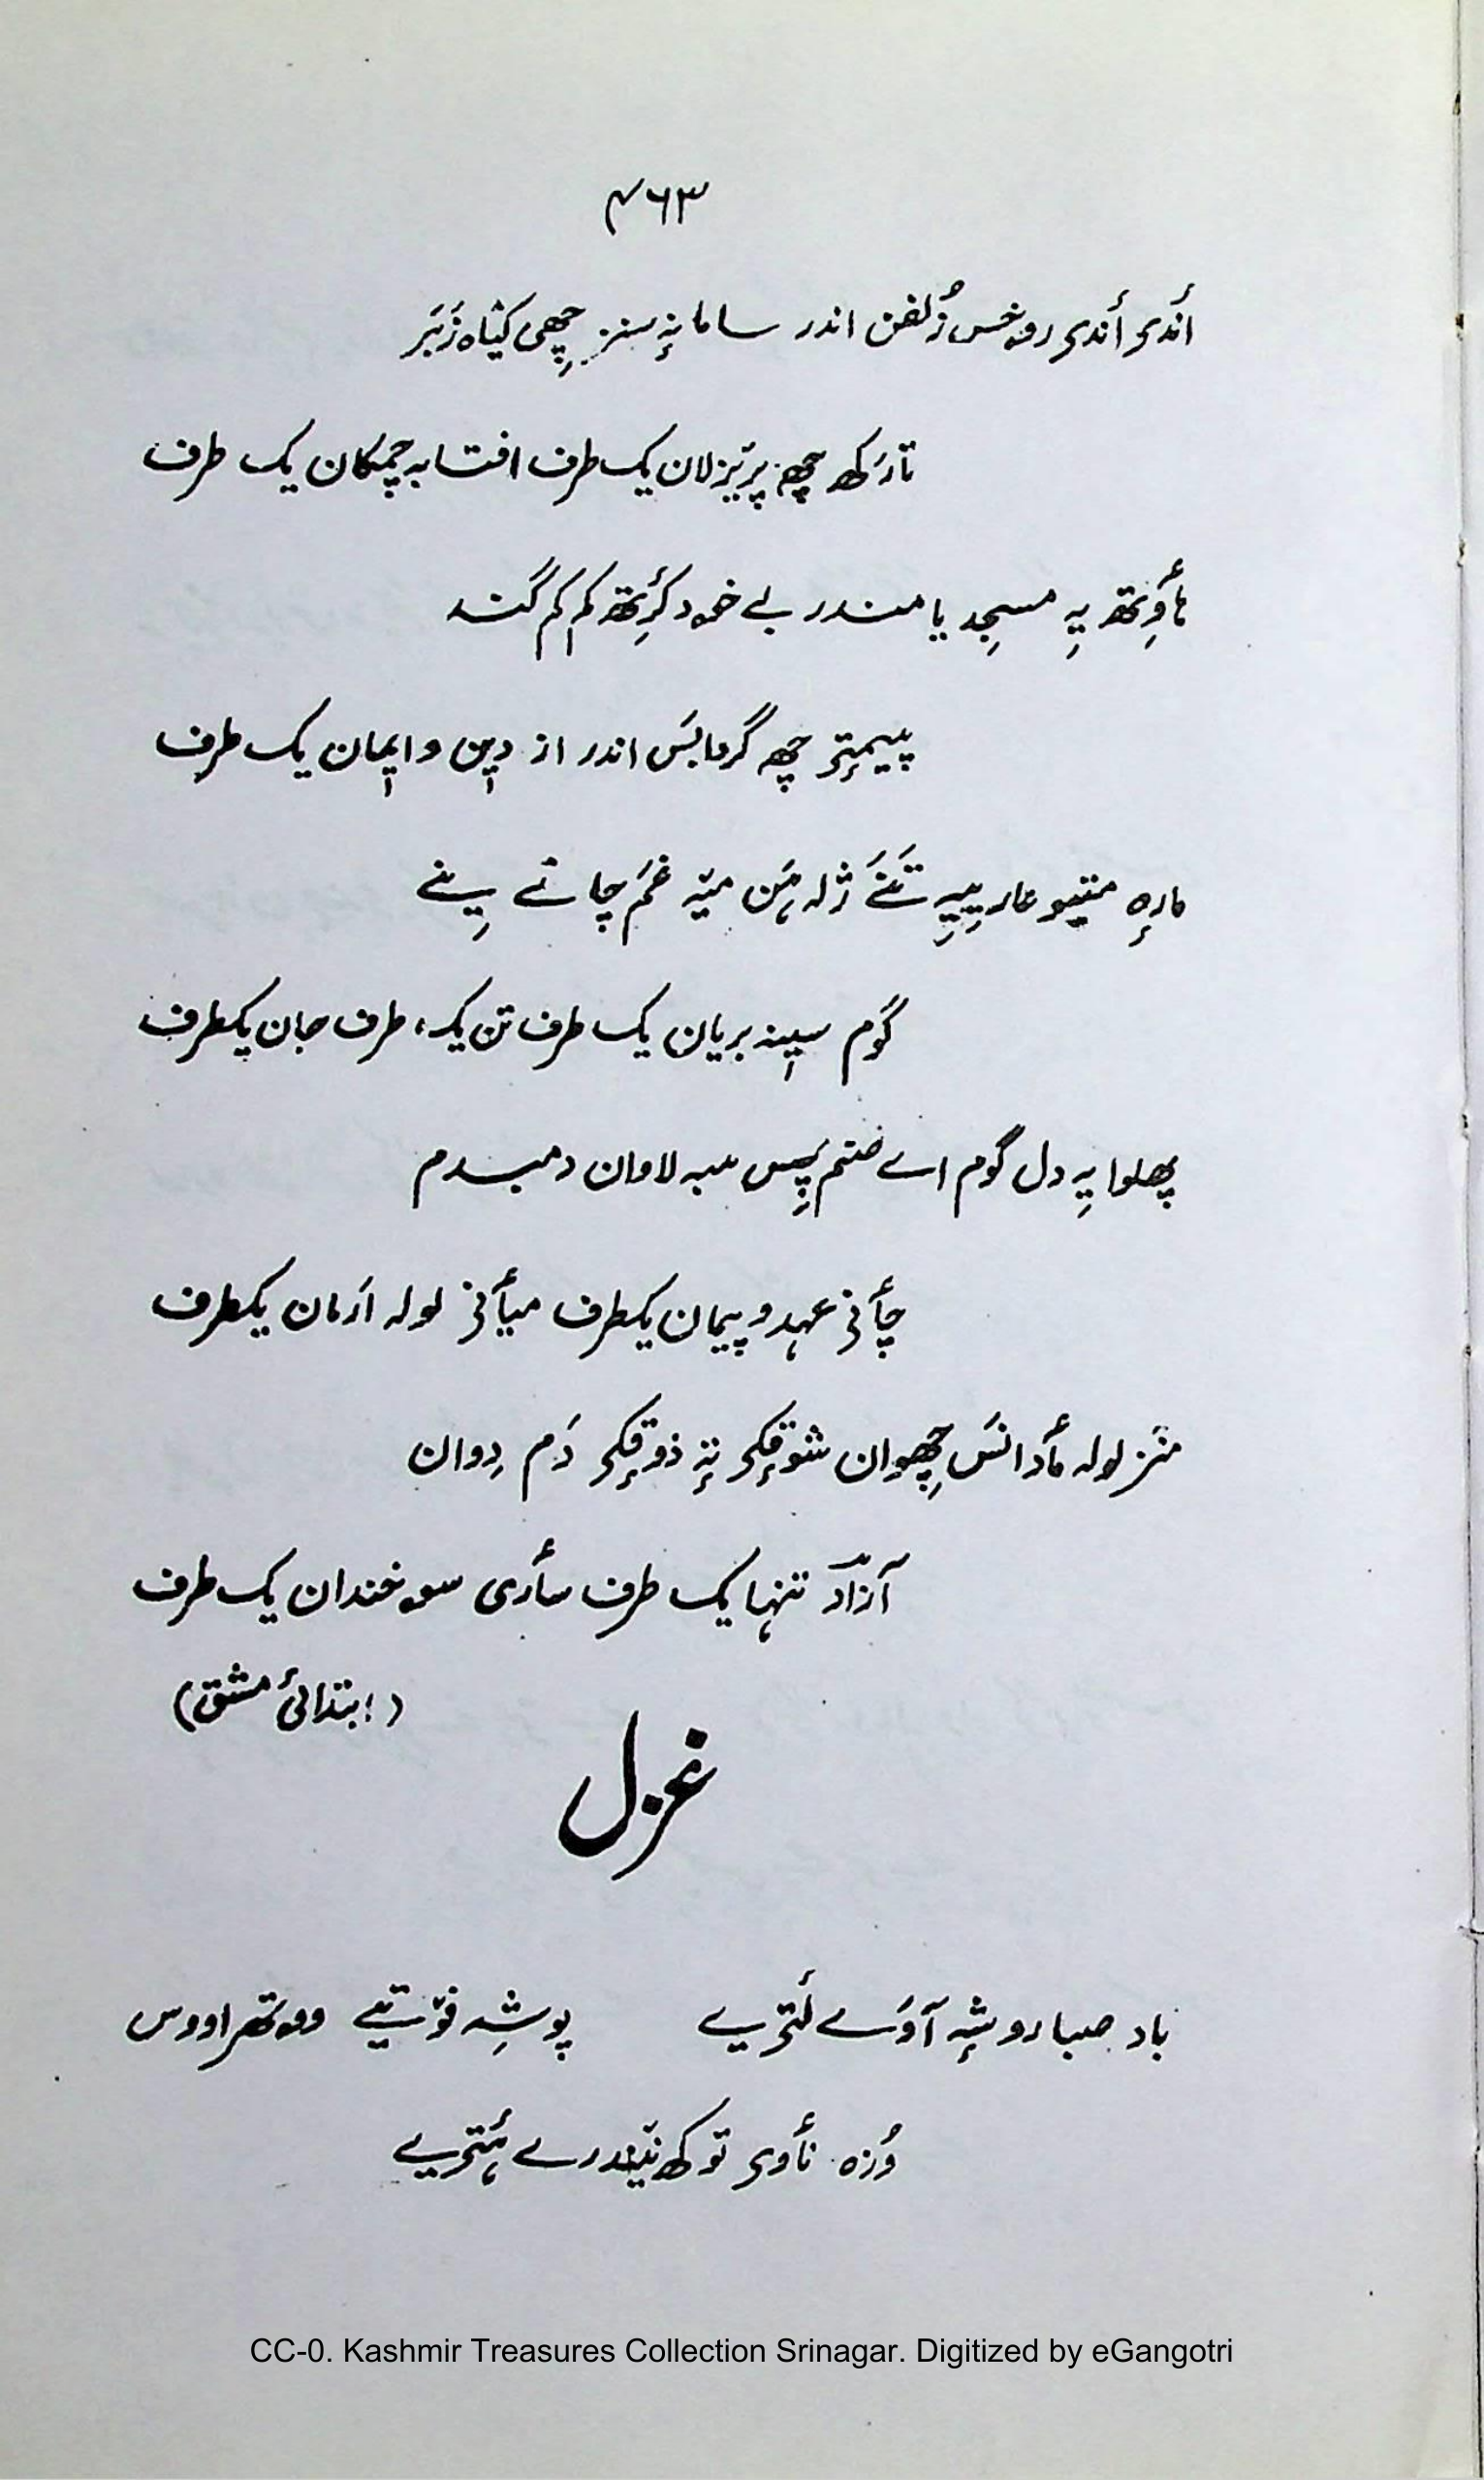 ۴۶۳
أندی أندی روخس زُلفن اندر سامانہٕ سنز چھِی کیٛاہ زَبَر
تارَکھ چھِ پرٛیزلان یک طرف افتابہ چمکان یک طرف
ہأوِتھ یہِ مسجِد یا مندر بے خود کٔرِتھ کم کم گنہ
پیمٕتی چھِ گردابَس اندر از دیٖن و ایٖمان یک طرف
مارٕہ متیو عار یِیہِ تَنَے ژلہ ہَن میٚہ غَم چانے یِنے
گوٚم سیٖنہ بریان یک طرف تن یک طرف جان یکطرف
پھلوا یہِ دل گوم اے صنم یِس سہ لاوان دمبدم
چأنی عہد و پیمان یکطرف میأنی لولہ ارَمان یکطرف
منٛز لولہ مأدانَس چھِوان شوقٕکی تہٕ ذوقٕکی دَم دِوان
آزاد تنہا یک طرف سأری سوخندان یک طرف
(ابتدائی مشق)
غزل
باد صبا روشہٕ آوَے لٔتی یے پوشِہ فوٚتیے ووتھراووس
وُزہ نأوی توکھ نیٚندرے ۂتی یے
CC-0. Kashmir Treasures Collection Srinagar. Digitized by eGangotri